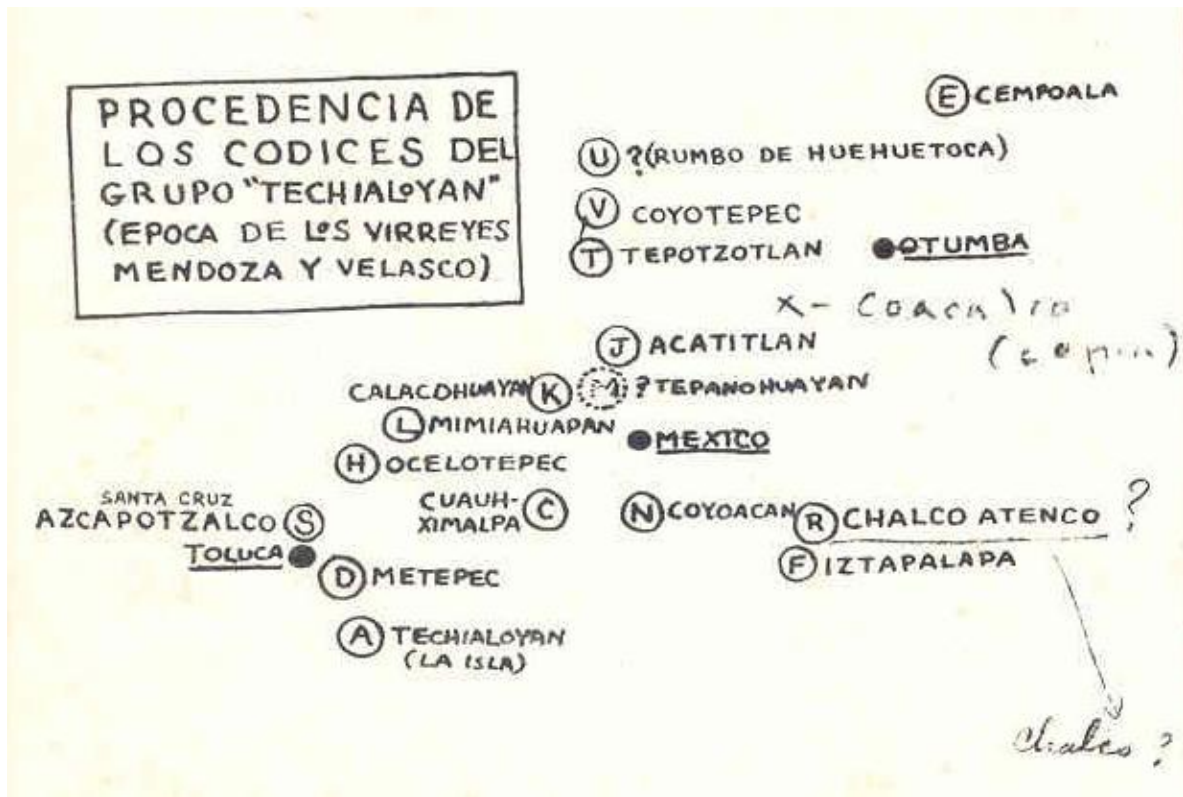 PROCEDENCIA DE
LOS CODICES DEL
GRUPO "TECHIALOYAN"
(EPOCA DE LOS VIRREYES
MENDOZA Y VELASCO)
E CEMPOALA
U ?(RUMBO DE HUEHUETOCA)
V COYOTEPEC
T TEPOTZOTLAN
OTUMBA
X- Coacalco
J ACATITLAN
CALACOHUAYAN K
M ? TEPANOHUAYAN
L MIMIAHUAPAN
MEXICO
H OCELOTEPEC
SANTA CRUZ
AZCAPOTZALCO S
CUAUH-
XIMALPA C
N COYOACAN
R CHALCO ATENCO ?
TOLUCA
F IZTAPALAPA
D METEPEC
A TECHIALOYAN
(LA ISLA)
Chalco ?